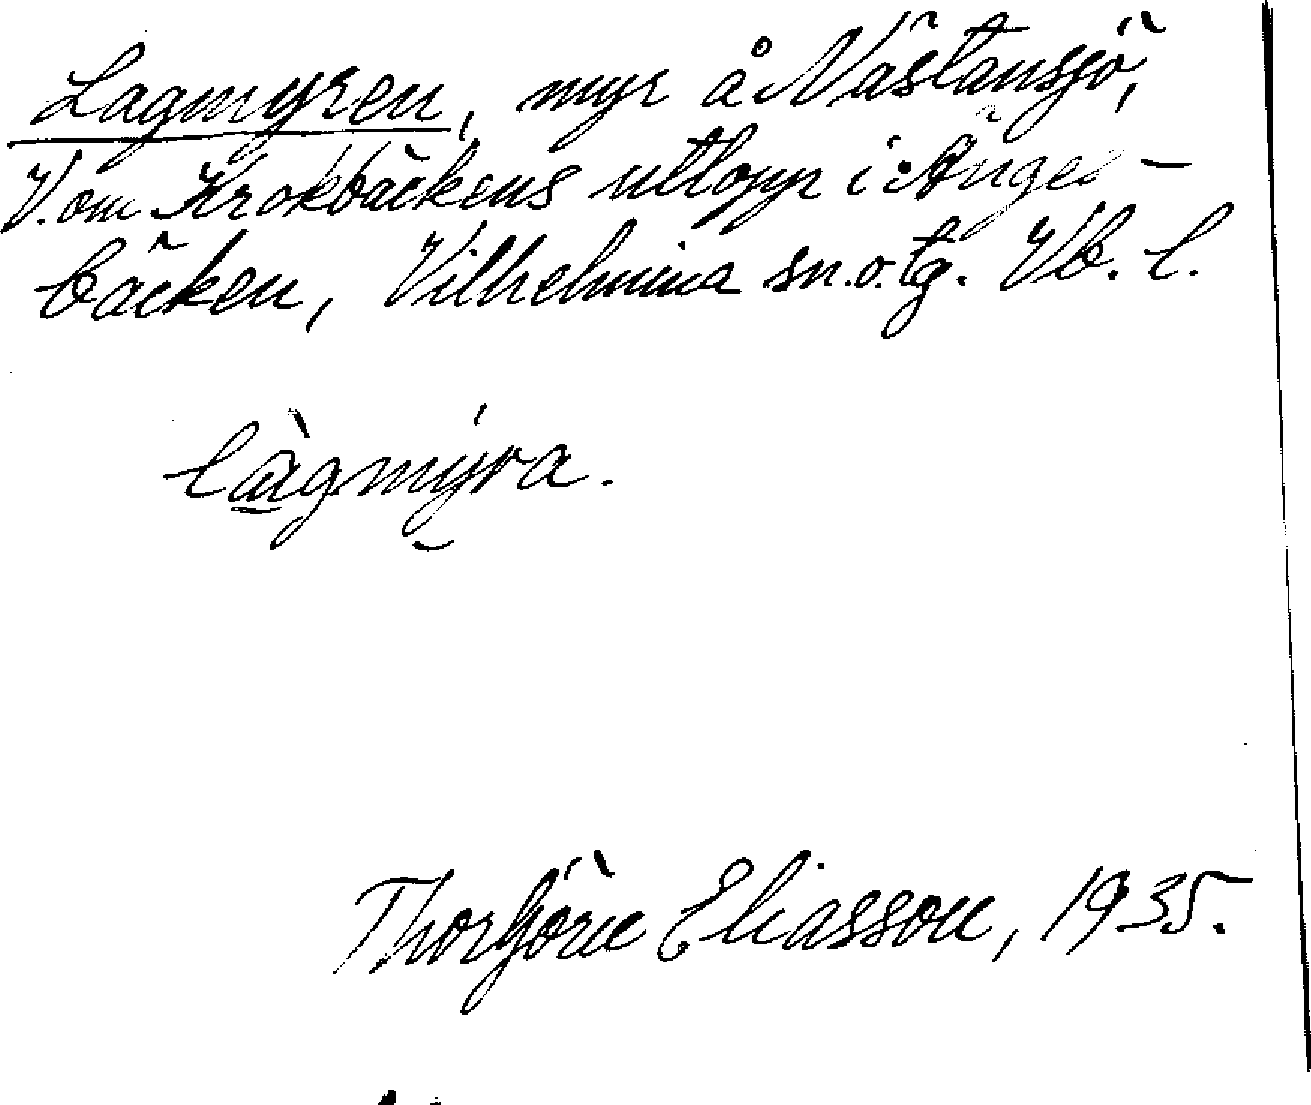 Lagmyren, myr å Nästansjö,
V. om Krokbäckens utlopp i Ånge-
bäcken, Vilhelmina sn. o. tg. Vb. l.
làgmýra.
Thorbjörn Eliasson, 1935.